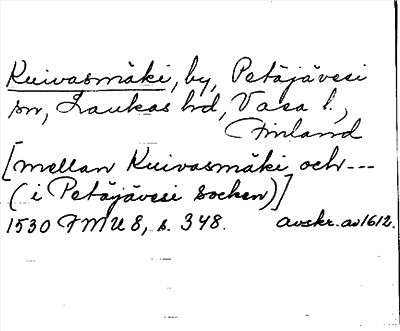 Kuivasmäki, by, Petäjävesi
sn, Laukas hd, Vasa l.,
Finland
[mellan Kuivasmäki och ---
(i Petäjävesi socken)]
1530 FMU 8, s. 348. avskr. av 1612.